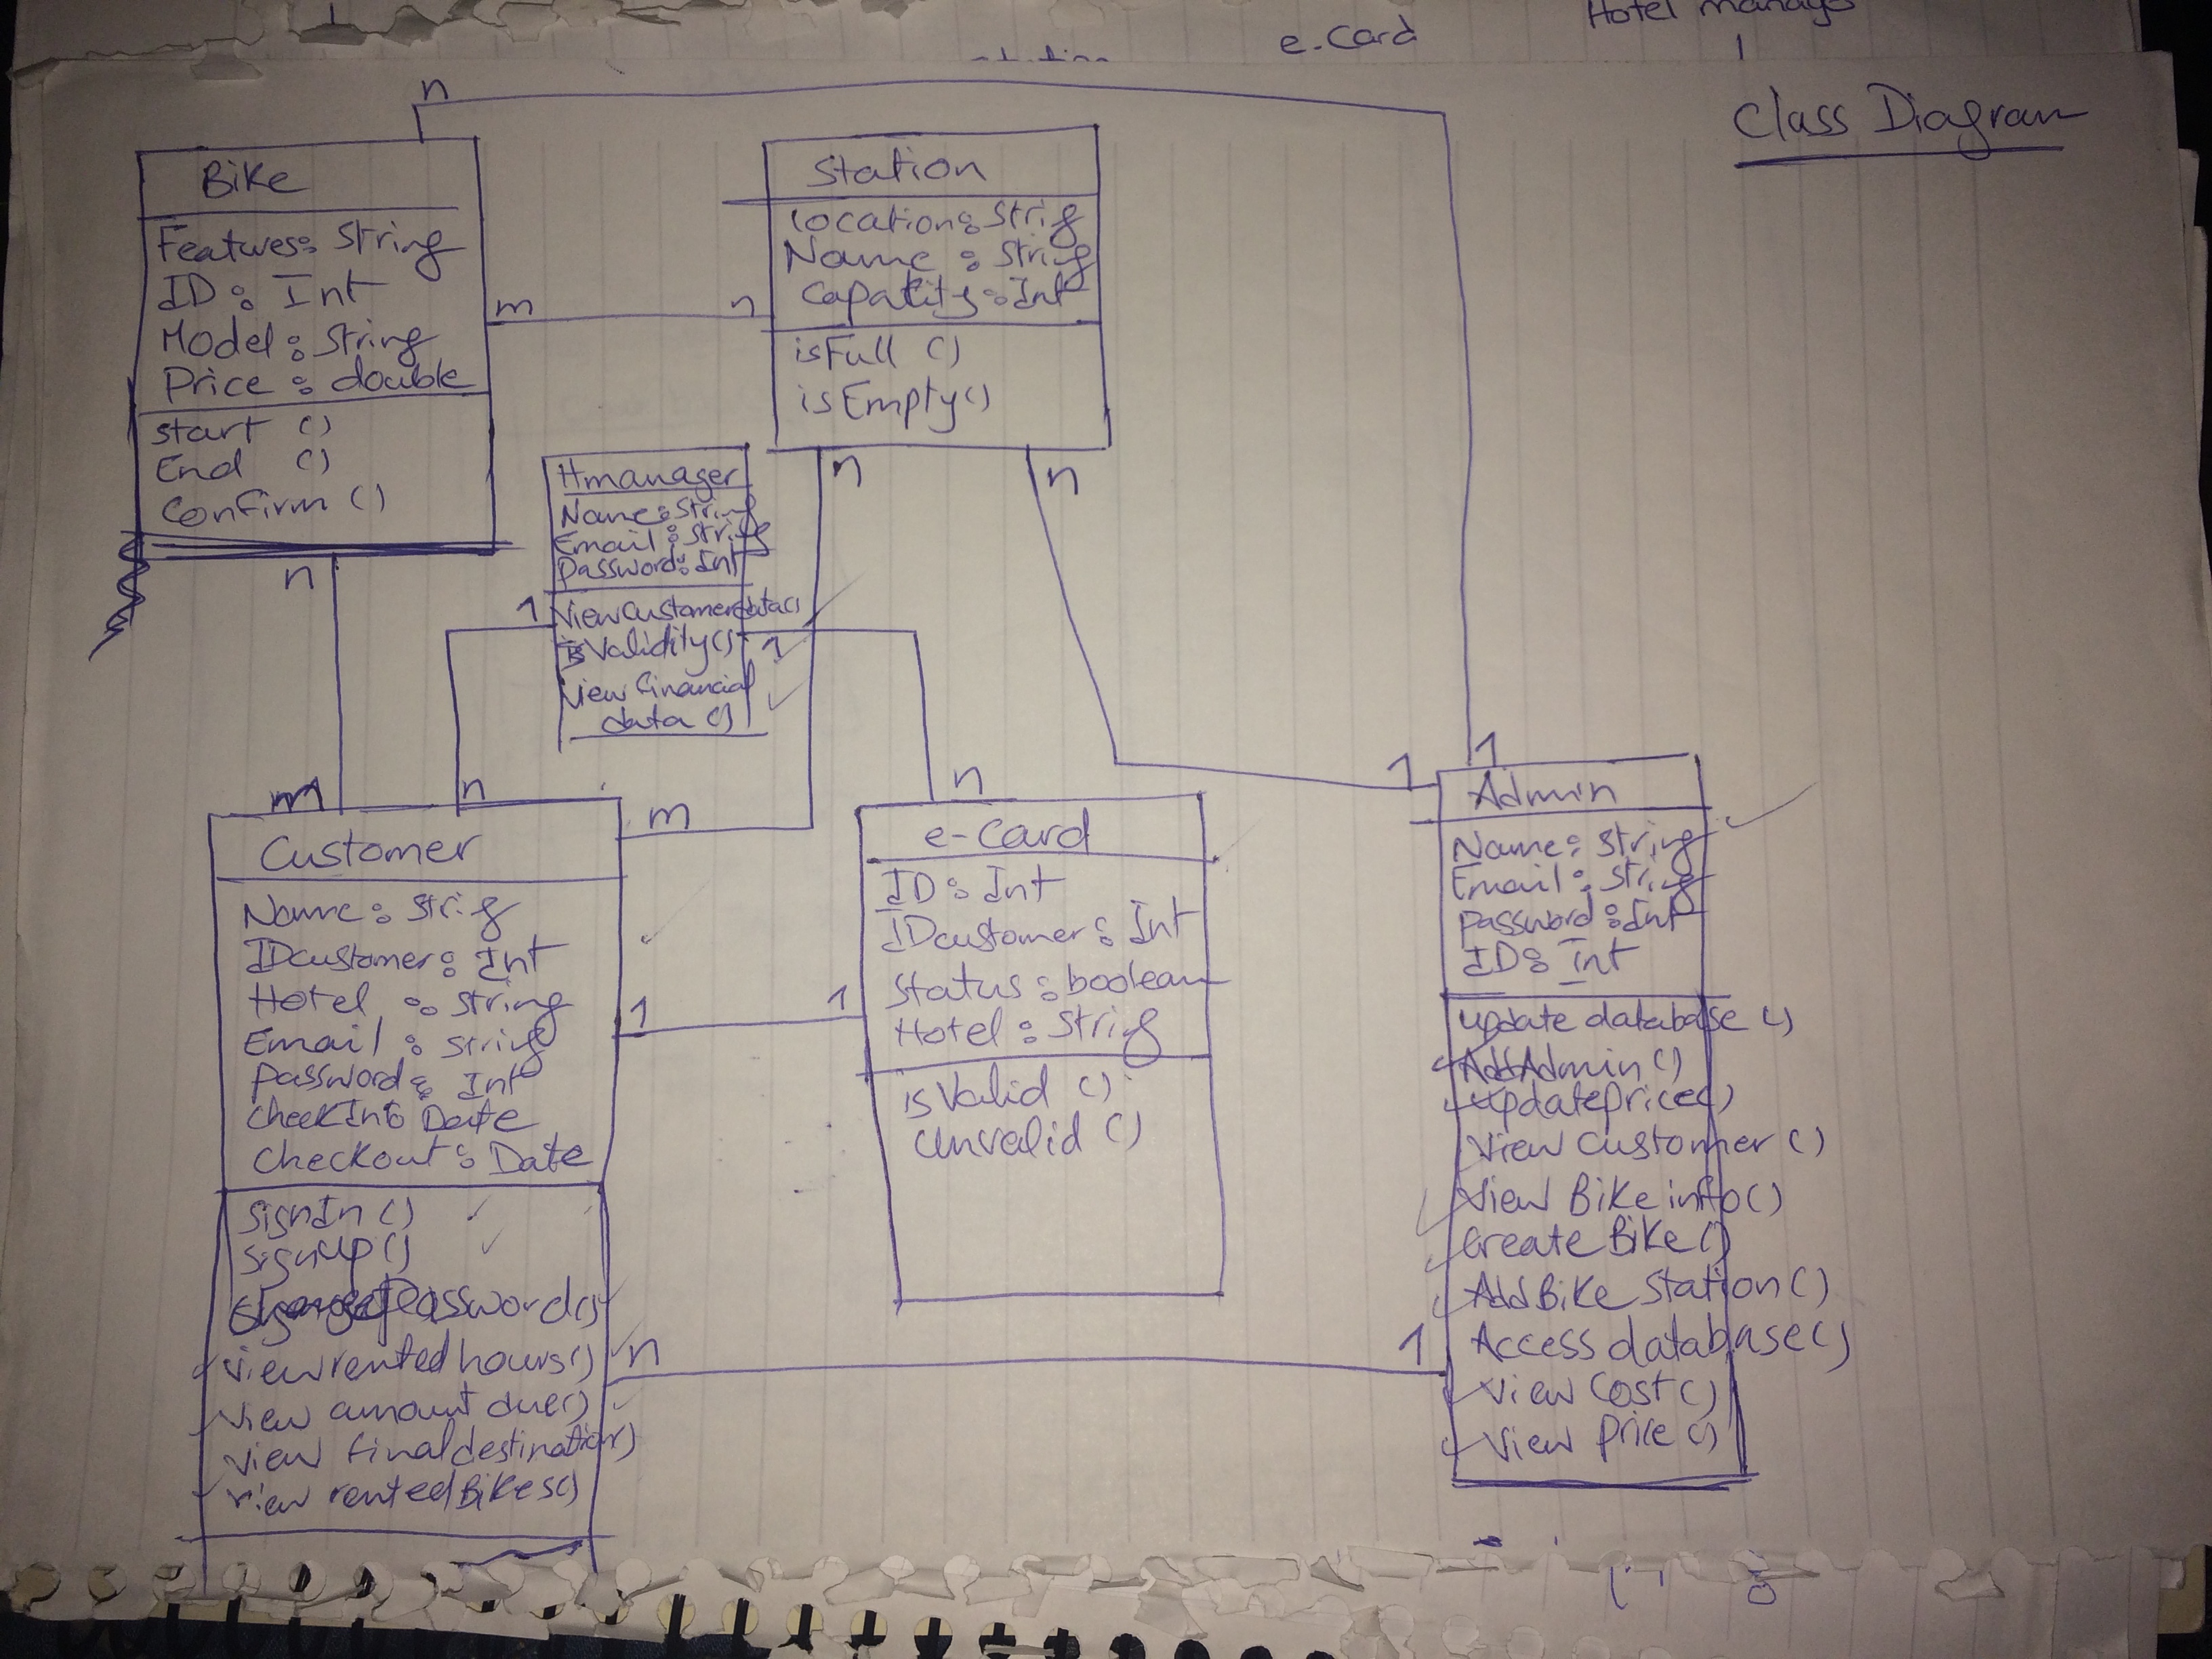 Hotel manager
e-Card
1
1
Class Diagram
n
Bike
Features: String
ID: Int
Model: String
Price: double
start ()
End ()
Confirm ()
m
n
Station
Location: String
Name: String
Capacity: Int
isFull ()
isEmpty()
n
n
Hmanager
Name: String
Email: String
Password: Int
ViewCustomerdata()
isValidity()
View financial
data ()
1
1
n
m
n
m
n
Customer
Name: String
IDcustomer: Int
Hotel: String
Email: String
Password: Int
CheckIn: Date
Checkout: Date
SignIn ()
SignUp()
Password()
View rented hours()
View amount due()
View final destination()
View rented Bikes()
1
1
e-Card
ID: Int
IDcustomer: Int
Status: boolean
Hotel: String
isValid ()
Unvalid ()
1
1
Admin
Name: String
Email: String
Password: Int
ID: Int
update database ()
AddAdmin ()
updateprice()
View Customer ()
View Bike info()
Create Bike()
AddBike Station()
Access database()
View Cost()
View Price ()
n
1